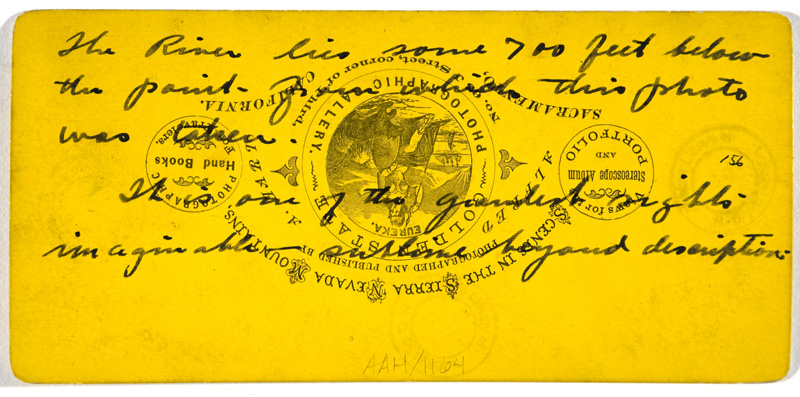 The River lies some 700 feet below
the point from which this photo
was taken.
It is one of the grandest sights
imaginable – sublime beyond description.
156
AAH/1164
SCENES IN THE SIERRA NEVADA MOUNTAINS,
PHOTOGRAPHED AND PUBLISHED BY
ALFRED A. HART,
GOLDEN STATE
PHOTOGRAPHIC GALLERY,
EUREKA.
Street, corner of Third,
SACRAMENTO, CALIFORNIA.
Views for the
Stereoscope Album
AND
PORTFOLIO
PHOTOGRAPHIC
Hand Books
For Travelers.